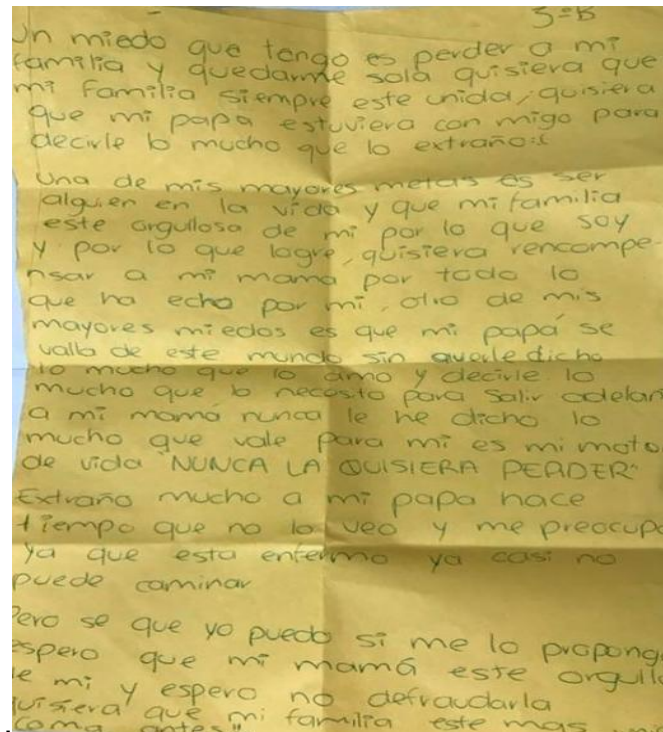 3=B
Un miedo que tengo es perder a mi
familia y quedarme sola quisiera que
mi familia siempre este unida, quisiera
que mi papa estuviera con migo para
decirle lo mucho que lo extraño:(
Una de mis mayores metas es ser
alguien en la vida y que mi familia
este orgullosa de mi por lo que soy
y por lo que logre, quisiera rencompe-
nsar a mi mama por todo lo
que ha echo por mi, otro de mis
mayores miedos es que mi papá se
valla de este mundo sin averle dicho
lo mucho que lo amo y decirle lo
mucho que lo necesito para salir adelan
a mi mamá nunca le he dicho lo
mucho que vale para mi es mi moto
de vida "NUNCA LA QUISIERA PERDER"
Extraño mucho a mi papa hace
tiempo que no lo veo y me preocupa
ya que esta enfermo ya casi no
puede caminar
Pero se que yo puedo si me lo propong
espero que mi mamá este orgull
de mi y espero no defraudarla
quisiera que mi familia este mas
como antes"